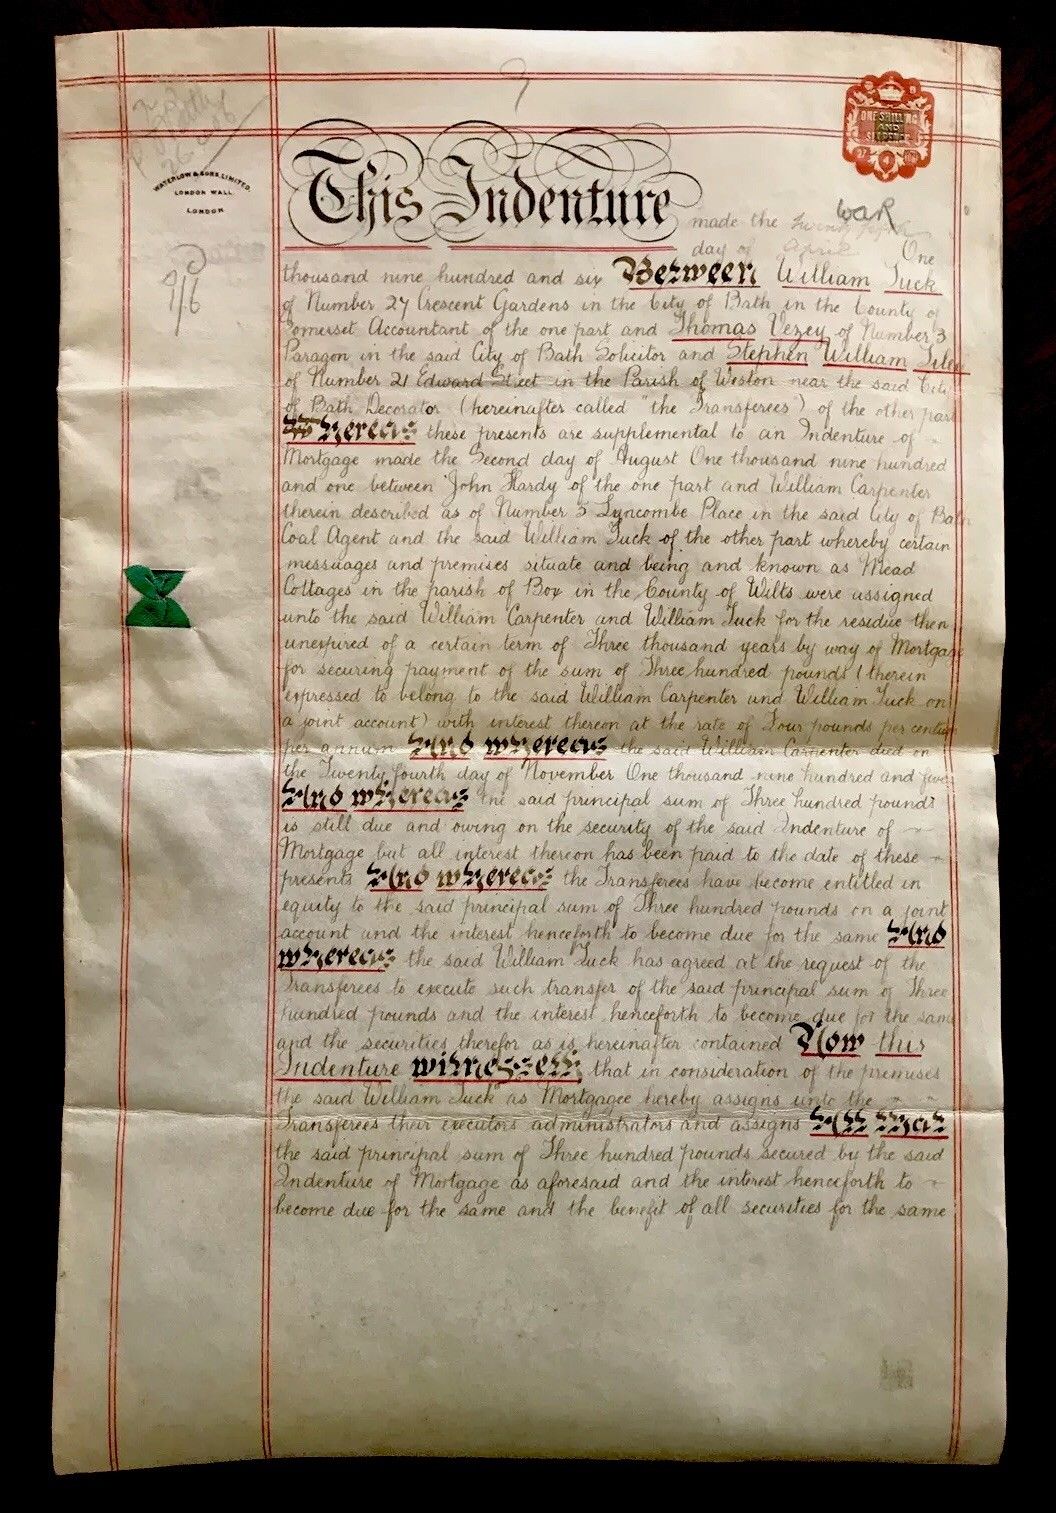 WATERLOW & SONS LIMITED,
LONDON WALL,
LONDON
ONE SHILLING
AND
SIXPENCE
WaR
This Indenture made the twenty fifth
day of April One
thousand nine hundred and six Between William Tuck
of Number 27 Crescent Gardens in the City of Bath in the County of
Somerset Accountant of the one part and Thomas Vezey of Number 3
Paragon in the said City of Bath Solicitor and Stephen William
of Number 21 Edward Street in the Parish of Weston near the said City
of Bath Decorator (hereinafter called "the Transferees") of the other part
Whereas these presents are supplemental to an Indenture of
Mortgage made the Second day of August One thousand nine hundred
and one between John Hardy of the one part and William Carpenter
therein described as of Number 5 Lyncombe Place in the said City of Bath
Coal Agent and the said William Tuck of the other part whereby certain
messuages and premises situate and being and known as Mead
Cottages in the parish of Box in the County of Wilts were assigned
unto the said William Carpenter and William Tuck for the residue then
unexpired of a certain term of Three thousand years by way of Mortgage
for securing payment of the sum of Three hundred pounds (therein
expressed to belong to the said William Carpenter and William Tuck on
a joint account) with interest thereon at the rate of Four pounds per centum
per annum And whereas the said William Carpenter died on
the Twenty fourth day of November One thousand nine hundred and five
And whereas the said principal sum of Three hundred pounds
is still due and owing on the security of the said Indenture of
Mortgage but all interest thereon has been paid to the date of these
presents And whereas the Transferees have become entitled in
equity to the said principal sum of Three hundred pounds on a joint
account and the interest henceforth to become due for the same And
whereas the said William Tuck has agreed at the request of the
Transferees to execute such transfer of the said principal sum of Three
hundred pounds and the interest henceforth to become due for the same
and the securities therefor as is hereinafter contained Now this
Indenture witnesseth that in consideration of the premises
the said William Tuck as Mortgagee hereby assigns unto the
Transferees their executors administrators and assigns All that
the said principal sum of Three hundred pounds secured by the said
Indenture of Mortgage as aforesaid and the interest henceforth to
become due for the same and the benefit of all securities for the same